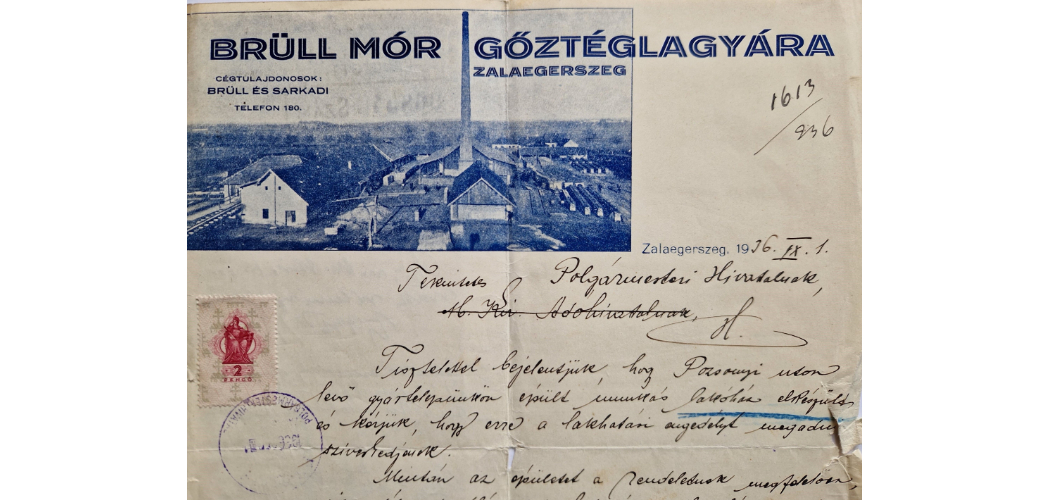 BRÜLL MÓR GŐZTÉGLAGYÁRA
ZALAEGERSZEG
CÉGTULAJDONOSOK:
BRÜLL ÉS SARKADI
TELEFON 180.
1613
/936
Zalaegerszeg, 1936. IX. 1.
Tekintetes Polgármesteri Hivatalnak,
M. Kir. Adóhivatalnak,
Tisztelettel bejelentjük, hog Pozsonyi uton
levő gyártelepünkön épült munkás lakóház elkészült
és kérjük, hogy erre a lakhatási engedélyt megadni
sziveskedjenek.
Miután az épületet a rendeletnek megfelelően,
2
PENGŐ